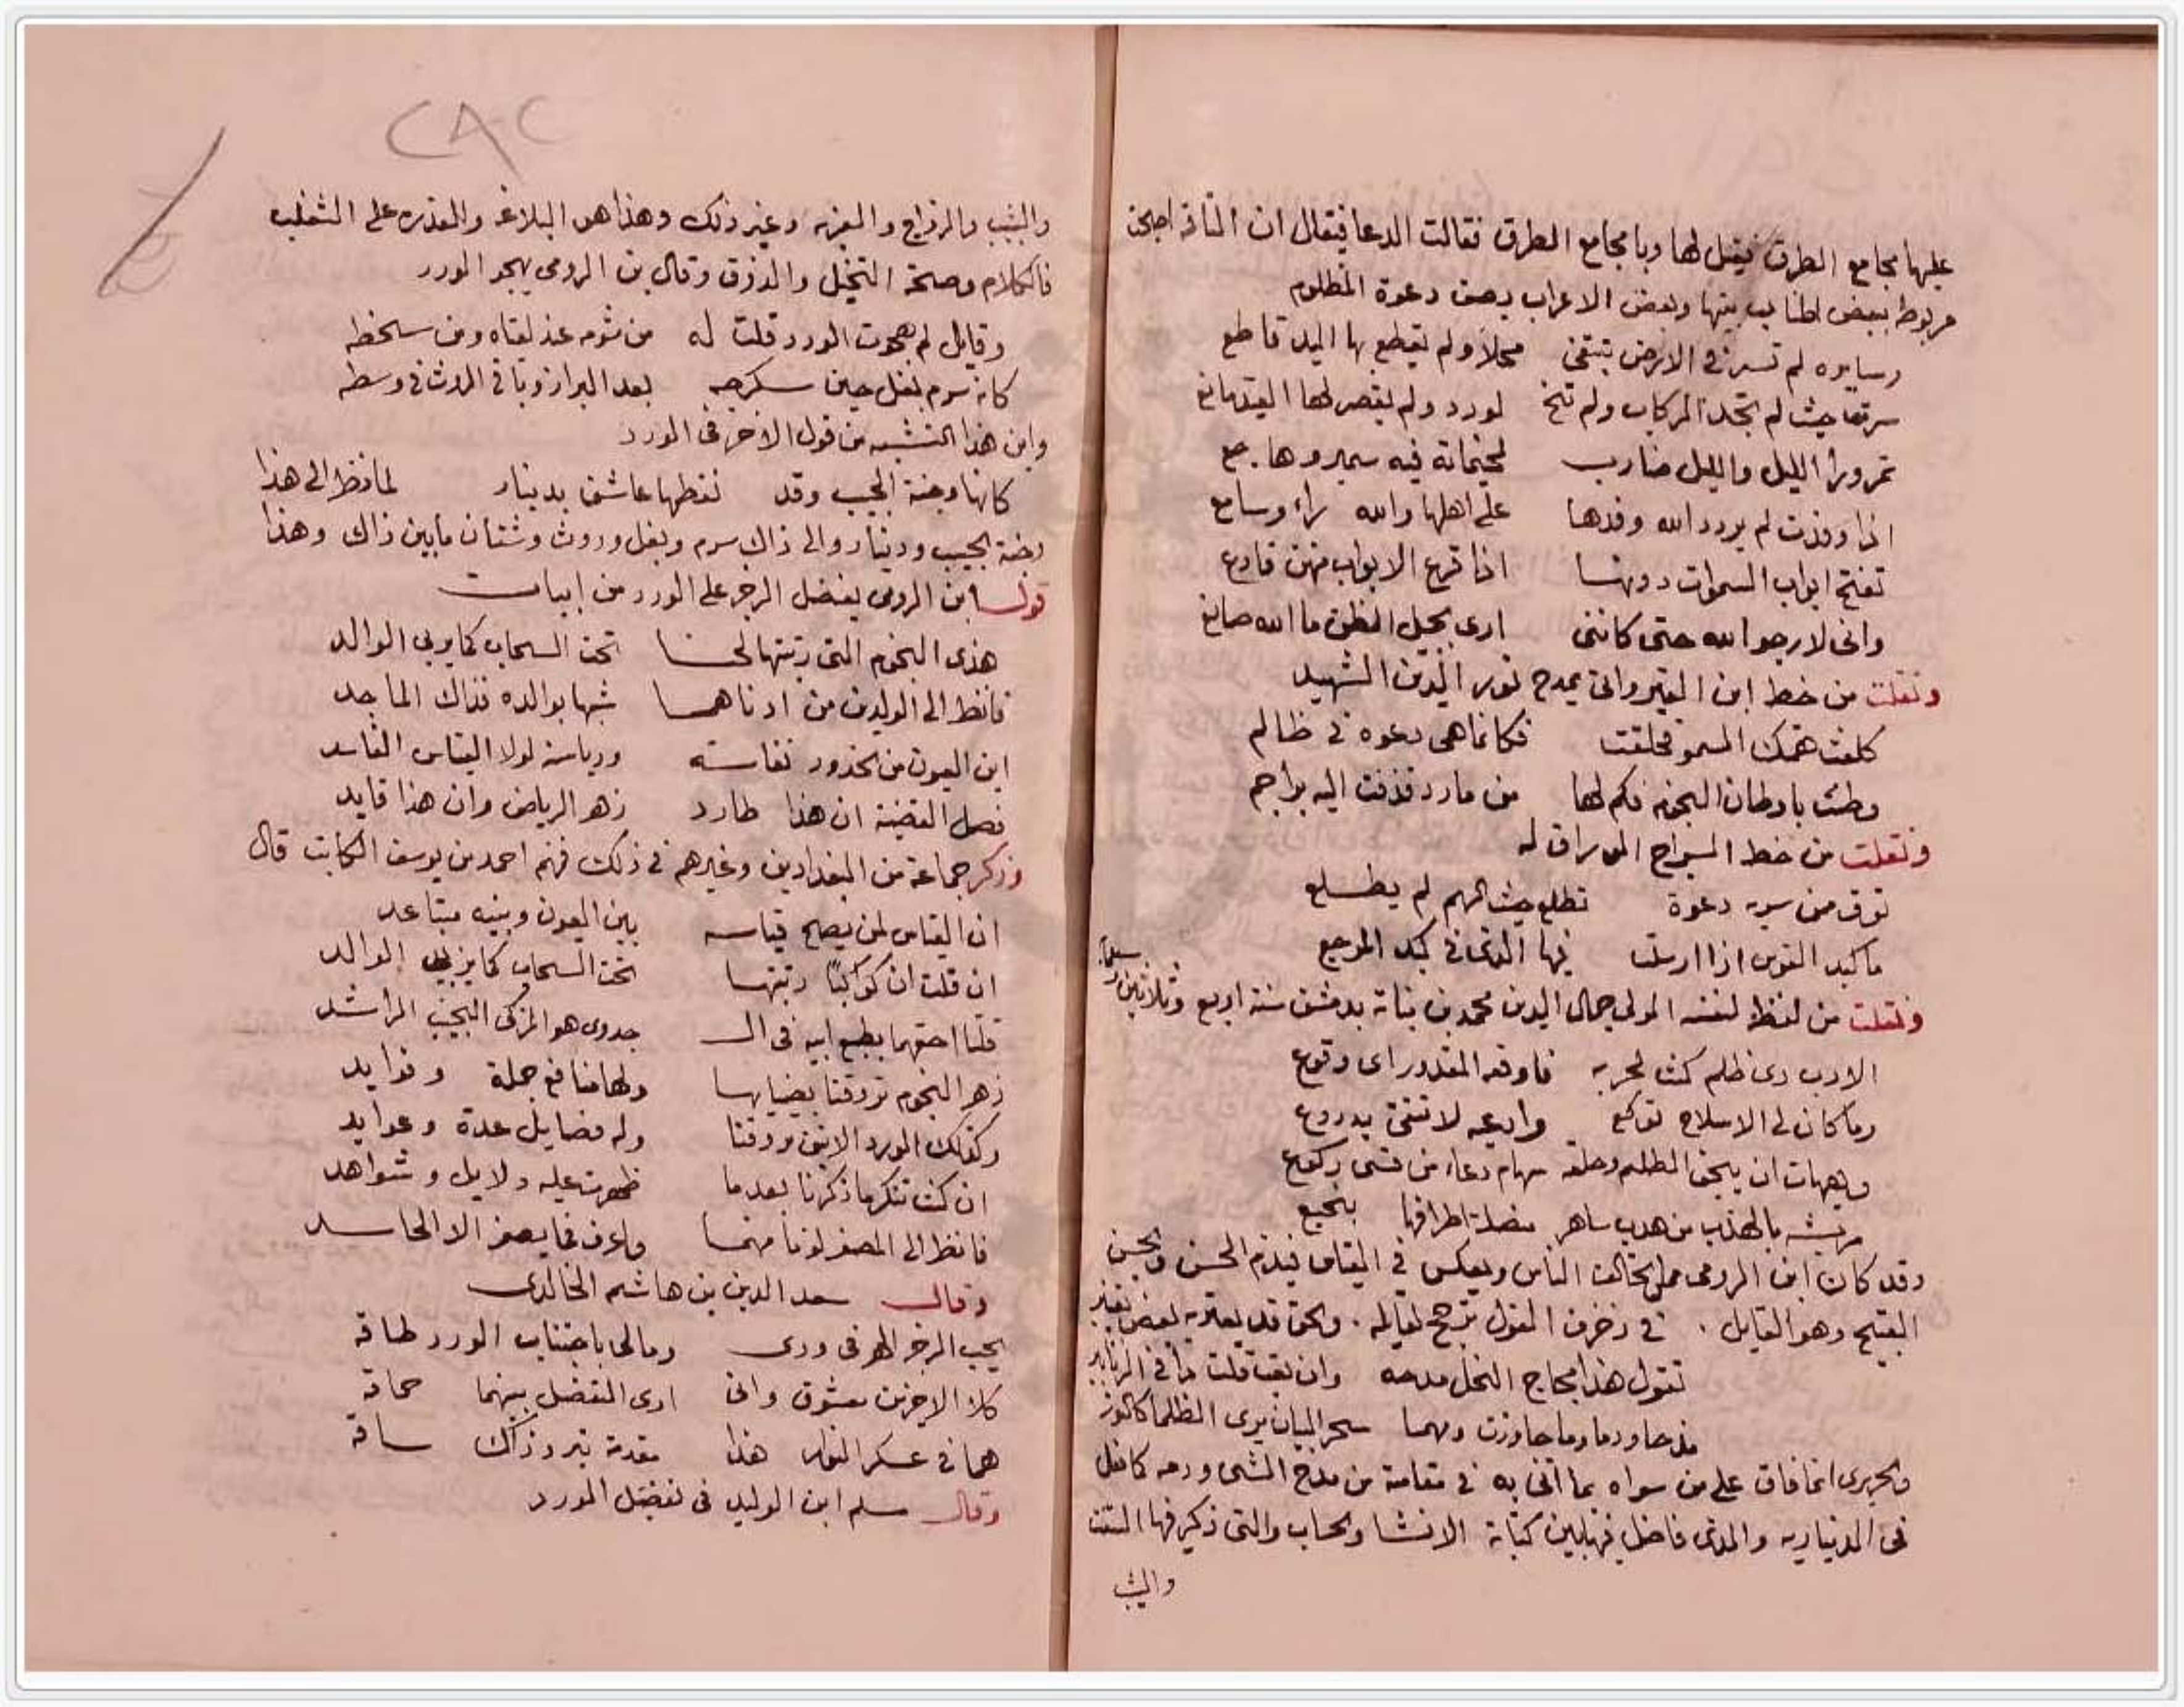 عليها مجامع الطرق فيقل لها ويا مجامع الطرق فقالت الدعا فيقال ان الناقة اصبحت
مربوطه ببعض اطناب بيتها وبعض الاعراب يصف دعوة المظلوم
وسايره لم تسر في الارض تبتغى محلا ولم يقطع بها البيد قاطع
سرت حيث لم تجد الركاب ولم تنخ لورد ولم يقصر لها القيد مانع
تمر ورا الليل والليل ضارب بجثمانه فيه سمير وهاجع
اذا وفدت لم يردد الله وفدها على اهلها والله راء وسامع
تفتح ابواب السموات دونها اذا قرع الابواب منهن قارع
وانى لارجو الله حتى كاننى ارى بجميل الظن ما الله صانع
ونقلت من خط ابن القيسرواني يمدح نور الدين الشهيد
كلفت همتك السمو فحلقت فكانما هى دعوه فى ظالم
وطئت باوطان النجوم فكم لها من مارد قذفت اليه براجم
ونقلت من خط السراج الوراق له
توق من سويه دعوة تطلع حيث الهم لم يطلع
ما كبد القوس اذا ارسلت فيها الذى فى كبد الموجع
ونقلت من لفظ لنفسه المولى جمال الدين محمد بن نباته بدمشق سنة اربع وثلاثين
الارب ذى ظلم كمنت لحربه فاوقعه المقدور اى وقوع
وما كان لى الاسلاح تركع وادعيه لا تتقى بدروع
وهيهات ان ينجو الظلوم وخلفه سهام دعاء من قسى ركوع
مريشه بالهدب من هدب ساهر منصلة اطرافها بنجيع
وقد كان ابن الرومى ممن يخالف الناس ويعكس فى القياس فيذم الحسن ويحسن
القبيح وهو القايل . فى زخرف القول ترجيح لقايله . والحق قد يعتريه بعض تغيير
تقول هذا مجاج النحل تمدحه وان تعب قلت ذا قى الزنابير
مدحا وذما وما جاوزت وصفهما سحر البيان يرى الظلما كالنور
والحريرى انما فاق على من سواه بما اتى به فى مقامته من مدح الشى وذمه كما فعل
فى الديناريه والذى فاضل فيها بين كتابة الانشا والحساب والتى ذكر فيها البنت
والثيب
٢٨٢
والثيب والزواج والعزبه وغير ذلك وهذا هو البلاغه والقدره على التغلب
فى الكلام وصحة التخيل والذوق وقال بن الرومى يهجو الورد
وقايل لم هجوت الورد قلت له من شومه عند لقياه ومن سخطه
كانه سرم بغل حين سكرجه بعد البراز وباقى الروث فى وسطه
واين هذا التشبيه من قول الاخر فى الورد
كانها وجنة الحبيب وقد نقطها عاشق بدينار فانظر الى هذا
وجنة الحبيب ودينار والى ذاك سرم وبغل وروث وشتان ما بين ذاك وهذا
قول ابن الرومى يفضل النرجس على الورد من ابيات
هذى النجوم التى ربتهما لحيا تحت السحاب كما يربى الوالد
فانظر الى الولدين من ادناهما شبها بوالده فذاك الماجد
اين العيون من الخدود نفاسة ورياسة لولا القياس الفاسد
فصل القضية ان هذا طارد زهر الرياض وان هذا قايد
وذكر جماعة من البغداديين وغيرهم فى ذلك فمنهم احمد بن يوسف الكاتب قال
ان القياس لمن يصح قياسه بين العيون وبينه متباعد
ان قلت ان كواكبا ربتهما تحت السحاب كما يربى الوالد
قلنا احقهما بطبع ابيه فى الـ جدوى هو الزكى النجيب الراشد
زهر النجوم تروقنا بضيايها ولها منافع جملة وفوايد
وكذلك الورد الانيق يروقنا وله فضايل عدة وعوايد
ان كنت تنكر ما ذكرنا بعد ما ظهرت عليه دلايل وشواهد
فانظر الى المصفر لونا منهما واعرف فما يصفر الا الحاسد
وقال سعد الدين بن هاشم الخالدى
يحب النرجس المرفى وردى ومالى باجتناب الورد طاقه
كلا الاخوين معشوق وانى ارى التفضيل بينهما حماقه
هما فى عسكر النوار هذا مقدمة تسير وذاك ساقه
وقال سلم ابن الوليد فى تفضيل الورد